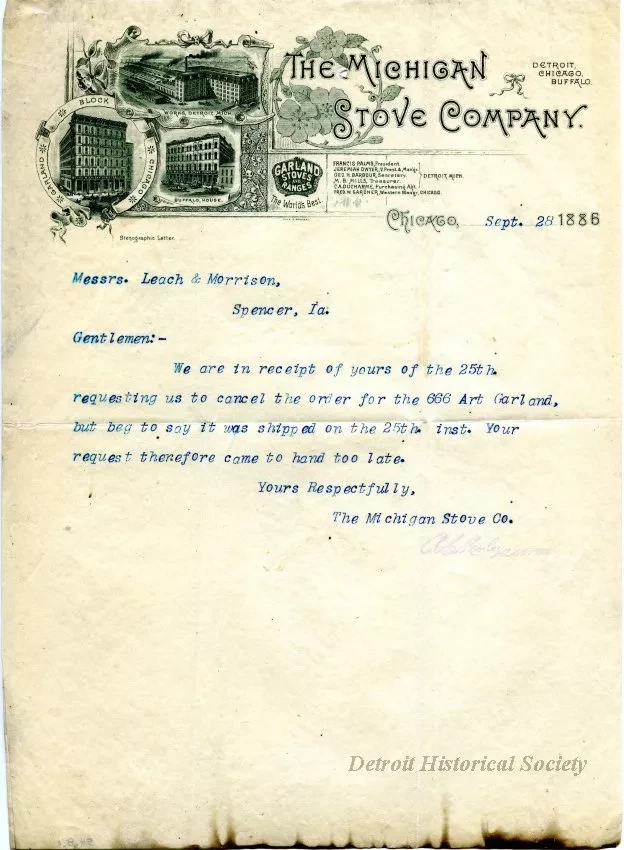 THE MICHIGAN
STOVE COMPANY.
DETROIT,
CHICAGO,
BUFFALO.
WORKS, DETROIT, MICH.
BLOCK
GARLAND
CHICAGO
BUFFALO, HOUSE.
GARLAND
STOVES
AND
RANGES
The World's Best.
FRANCIS PALMS, President.
JEREMIAH DWYER, V. Prest. & Mangr.
GEO. H. BARBOUR, Secretary.
M. B. MILLS, Treasurer.
C. A. DUCHARME, Purchasing Agt.
DETROIT, MICH.
FRED. W. GARDNER, Western Mangr. CHICAGO.
Stenographic Letter.
CHICAGO, Sept. 28 1886
Messrs. Leach & Morrison,
Spencer, Ia.
Gentlemen:-
We are in receipt of yours of the 25th.
requesting us to cancel the order for the 666 Art Garland,
but beg to say it was shipped on the 25th. inst. Your
request therefore came to hand too late.
Yours Respectfully,
The Michigan Stove Co.
Detroit Historical Society